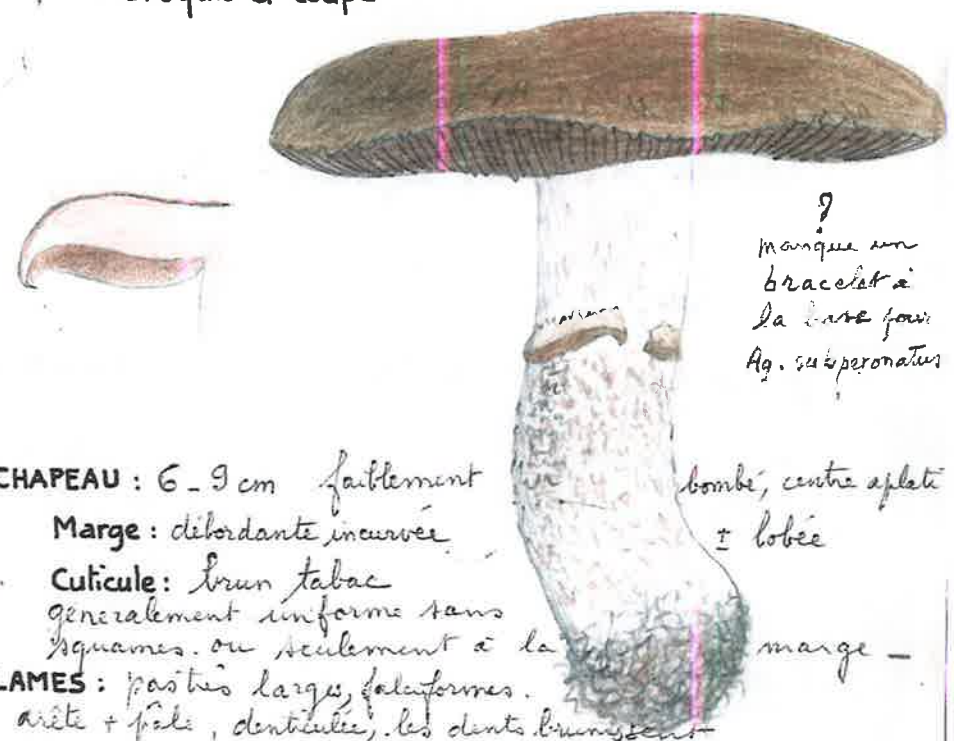 croquis et coupe
?
manque un
bracelet à
la base pour
Ag. subperonatus
CHAPEAU : 6 - 9 cm faiblement bombé, centre aplati
Marge : débordante incurvée ± lobée
Cuticule : brun tabac
généralement uniforme sans
squames. ou seulement à la marge -
LAMES : pas très larges, falciformes.
arête + pâle, denticulée, les dents brunissent